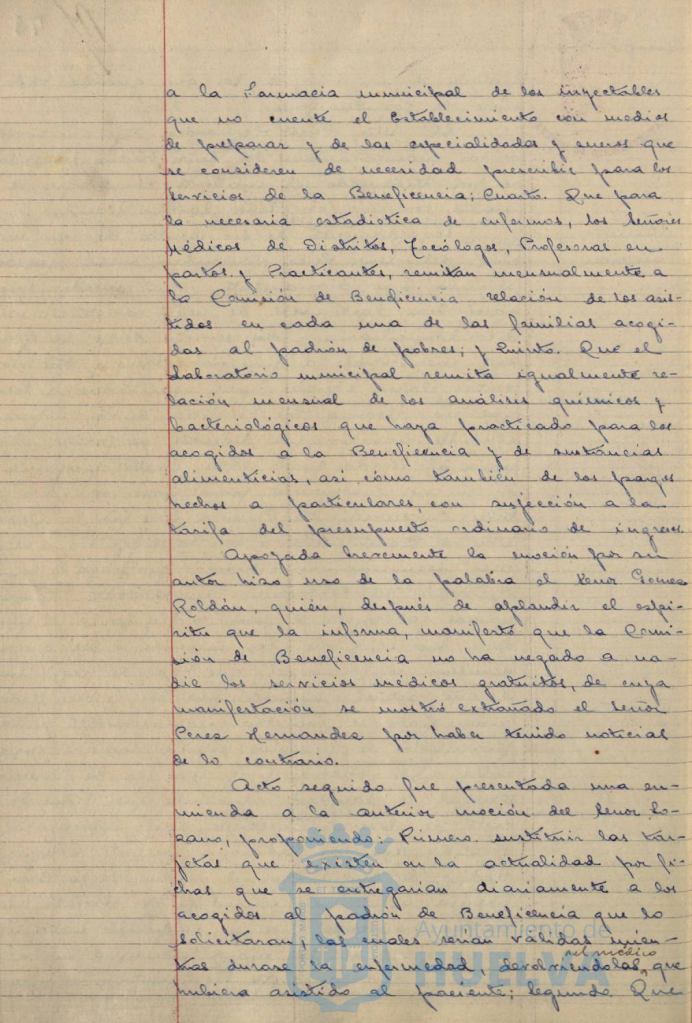 a la Farmacia municipal de los inyectables
que no cuente el Establecimiento con medios
de preparar y de las especialidades y sueros que
se consideren de necesidad prescribir para los
servicios de la Beneficencia; Cuarto. Que para
la necesaria estadistica de enfermos, los Señores
Médicos de Distritos, Tocólogos, Profesoras en
partos, y Practicantes, remitan mensualmente a
la Comisión de Beneficencia relación de los asis-
tidos en cada una de las familias acogi-
das al padrón de pobres; y Quinto. Que el
Laboratorio municipal remita igualmente re-
lación mensual de los análisis químicos y
bacteriológicos que haya practicado para los
acogidos a la Beneficencia y de sustancias
alimenticias, asi cómo también de los pagos
hechos a particulares, con sujección a la
tarifa del presupuesto ordinario de ingresos.
Apoyada brevemente la moción por su
autor hizo uso de la palabra el Señor Gomez
Roldán, quién, después de aplaudir el espi-
ritu que la informa, manifestó que la Comi-
sión de Beneficencia no ha negado a na-
die los servicios médicos gratuitos, de cuya
manifestación se mostró extrañado el Señor
Perez Hernandez por haber tenido noticias
de lo contrario.
Acto seguido fue presentada una en-
mienda a la anterior moción del Senor Lo-
zano, proponiendo: Primero. sustituir las tar-
jetas que existen en la actualidad por fi-
chas que se entregarian diariamente a los
acogidos al padrón de Beneficencia que lo
solicitaran, las cuales serian válidas mien-
tras durase la enfermedad, devolviendolas, el médico que
hubiera asistido al paciente; Segundo Que
Ayuntamiento de
HUELVA